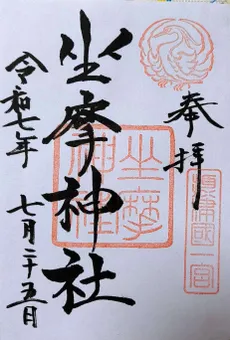 奉拝
摂津國一宮
坐摩神社
坐摩神社
令和七年
七月二十五日